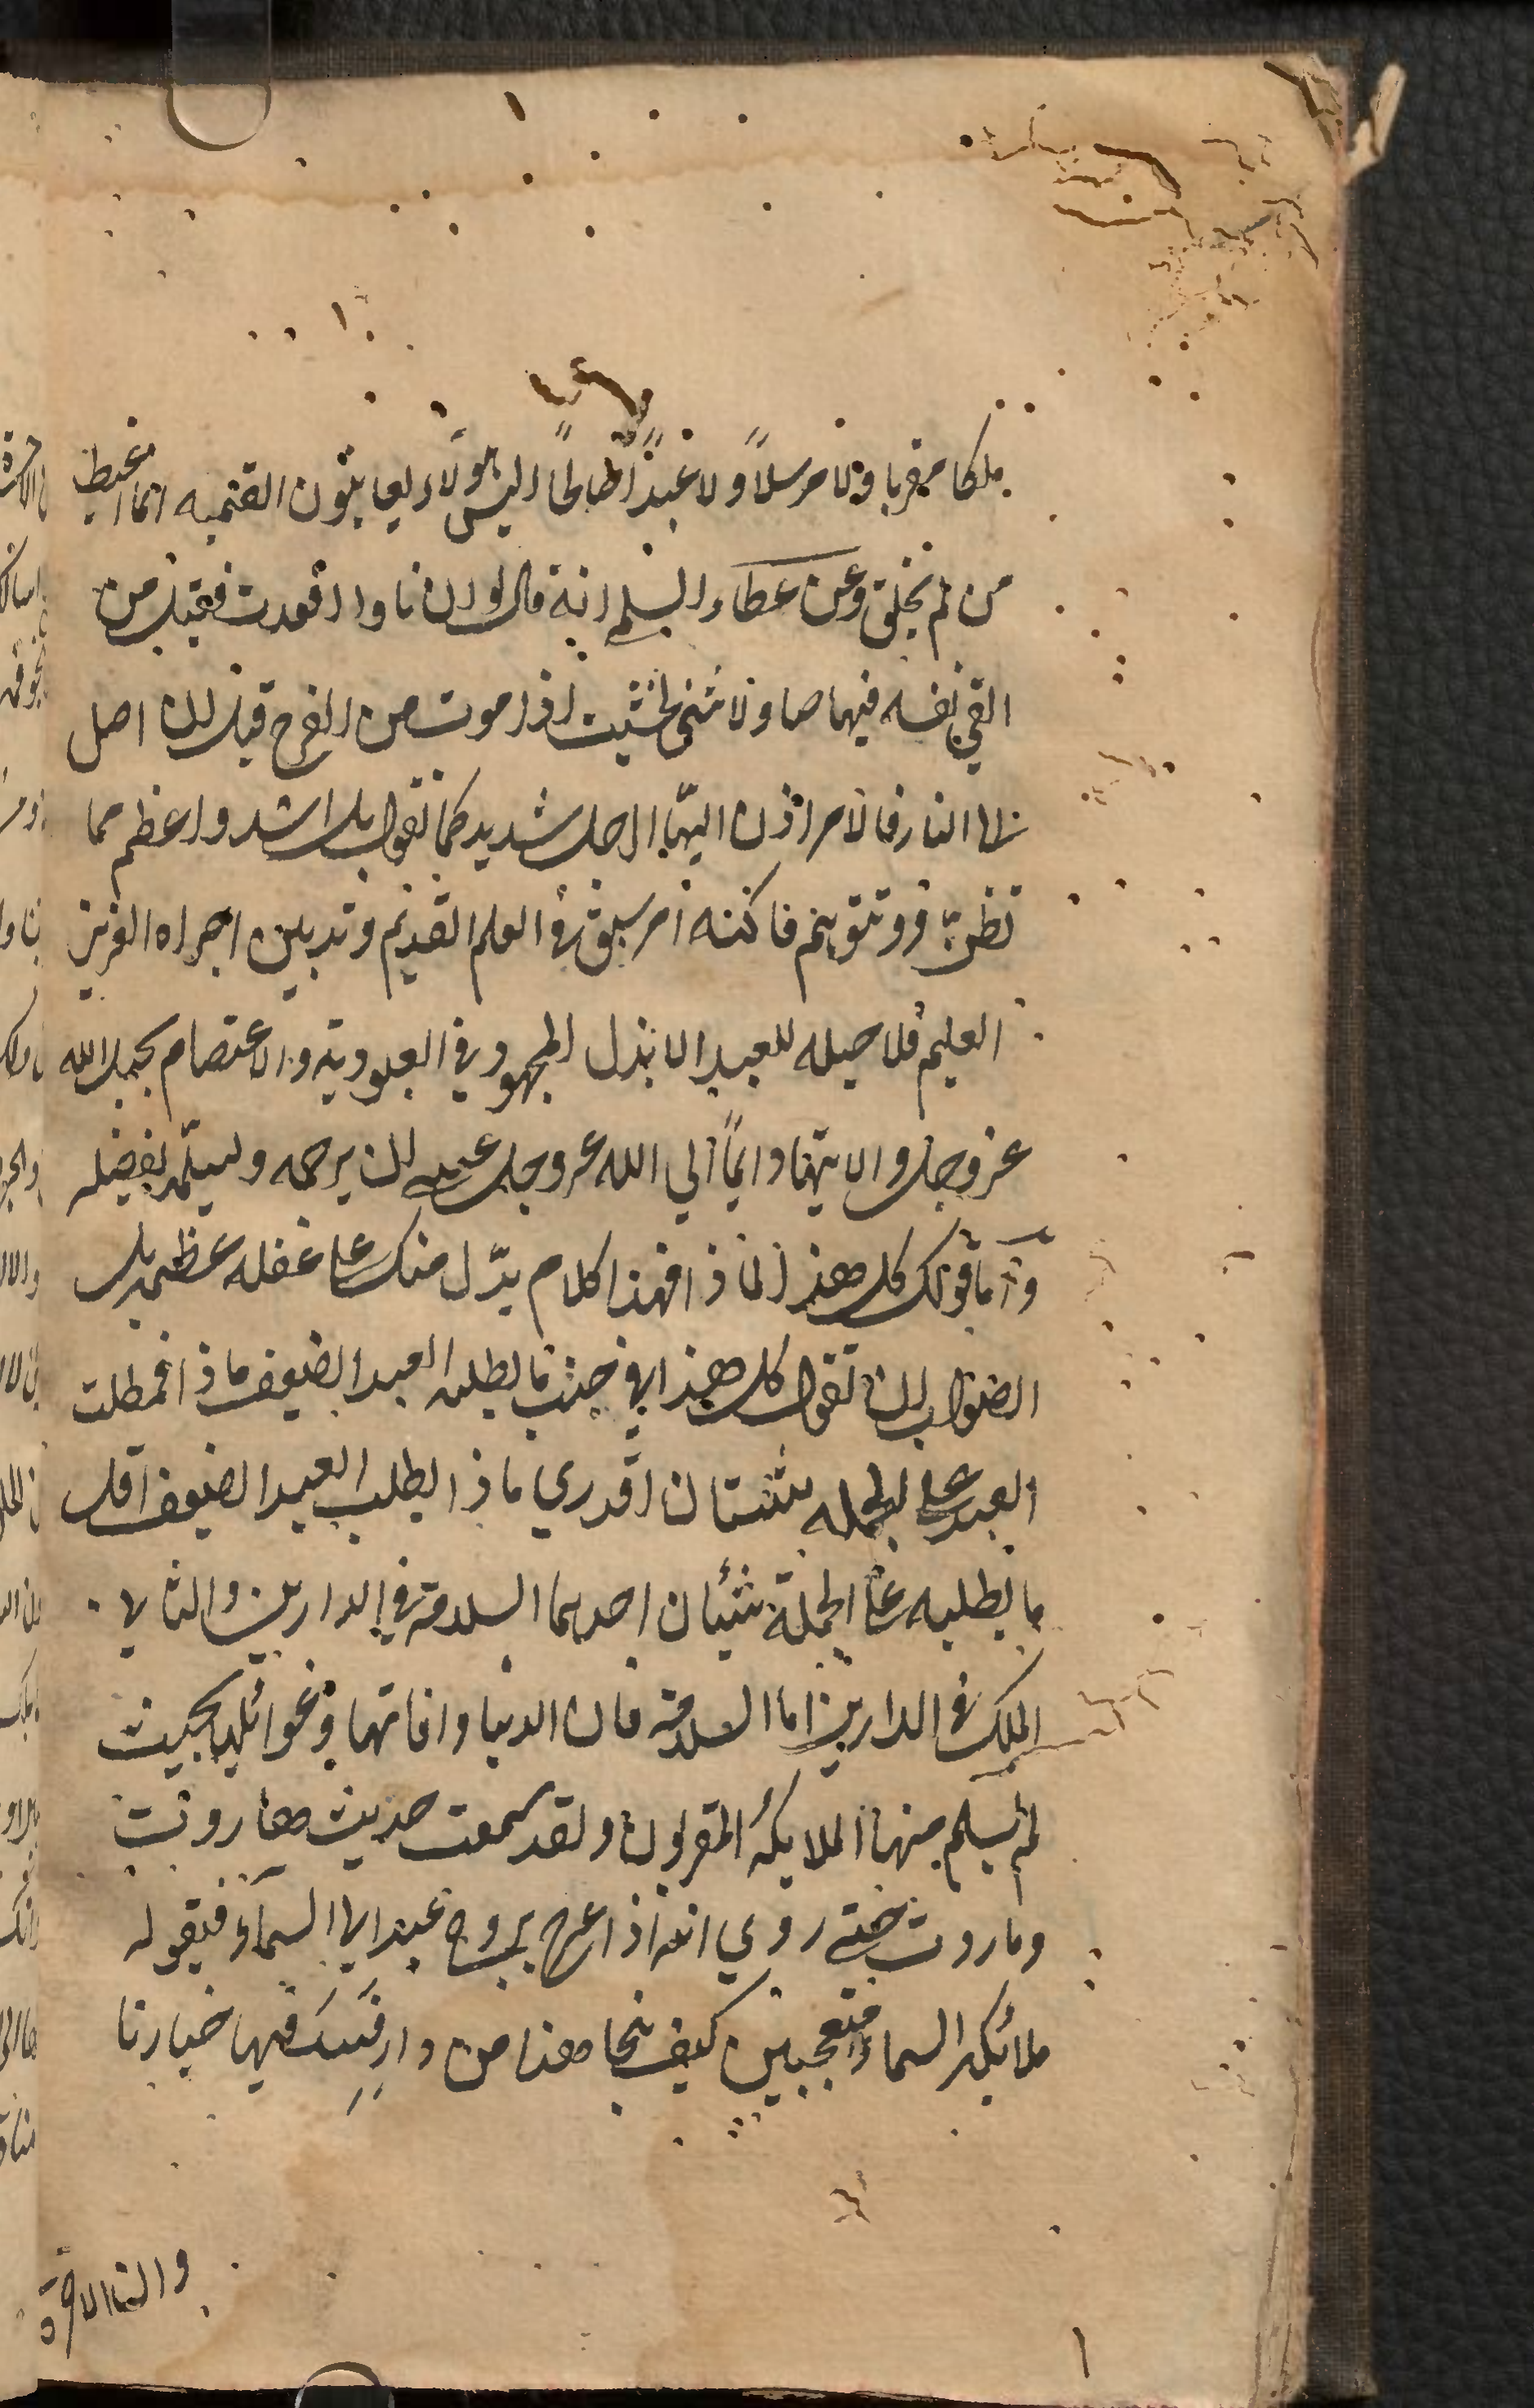 ملكا مقربا ولا مرسلاً ولا عبدًا صالحًا اليس هولاء يعاينون القيمه انما اغبط
من لم يخلق وعن عطاء السلم انه قال لو ان نارا اوقدت فقيل من
القي نفسه فيها صار لا شئ لخشيت اذا موت من الفرح قبل ان اصل
الى النار فالامر اذن ايها الرجل شديد كما تقول بل اشد واعظم مما
تظن وتتوهم فاكنه امر سبق في العلم القديم وتدبير اجراه العزيز
العليم فلا حيله للعبد الا بذل المجهود في العبودية والاعتصام بحبل الله
عز وجل والابتهال دايمًا الي الله عز وجل عسى ان يرحمه وليسلمه بفضله
وآما قولك كل هذا لماذا فهذا كلام يدّل منك على غفله عظيمه بل
الصواب ان تقول كل هذا في جنب ما يطلبه العبد الضعيف ماذا فمطلب
العبد على الجمله شيئان اتدري ماذا يطلب العبد الضعيف اقل
ما يطلبه على الجملة شيئان احديهما السلامة في الدارين والثاني
الملك في الدارين اما السلامة فان الدنيا وافاتها وغوائلها بحيث
لم يسلم منها الملايكة المقربون ولقد سمعت حديث هاروت
وماروت حتى روي انه اذا عرج بروح عبد الى السمآء فيقول
ملائكه السماء متعجبين كيف نجا هذا من دار فسد فيها خيارنا
والثانى الاخرة
١